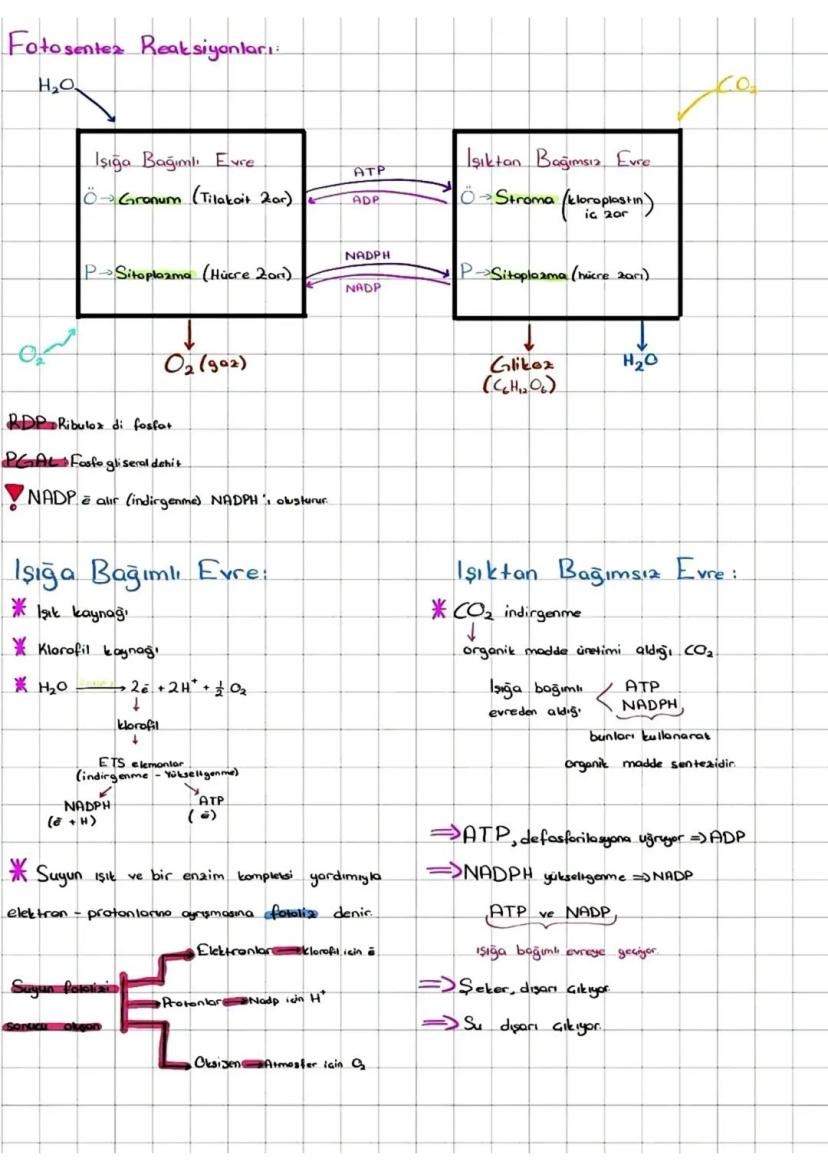 Fotosentez Reaksiyonları:
H₂O
CO₂
Işığa Bağımlı Evre
Ö → Granum (Tilakoit zar)
P → Sitoplazma (Hücre zarı)
ATP
ADP
NADPH
NADP
Işıktan Bağımsız Evre
Ö → Stroma (kloroplastın
iç zar)
P → Sitoplazma (hücre zarı)
O₂
O₂ (gaz)
Glikoz
(C₆H₁₂O₆)
H₂O
RDP: Ribuloz di fosfat
PGAL: Fosfo gliseral dehit
! NADP ē alır (indirgenme) NADPH'ı oluşturur.
Işığa Bağımlı Evre:
* Işık kaynağı
* Klorofil kaynağı
* H₂O → 2ē + 2H⁺ + ½ O₂
↓
klorofil
↓
ETS elemanlar
(indirgenme - Yükseltgenme)
NADPH
(ē + H)
ATP
(ē)
* Suyun ışık ve bir enzim kompleksi yardımıyla
elektron - protonlarına ayrışmasına fotoliz denir.
Suyun fotolizi
sonucu oluşan
Elektronlar → klorofil için ē
Protonlar → Nadp için H⁺
Oksijen → Atmosfer için O₂
Işıktan Bağımsız Evre:
* CO₂ indirgenme
↓
organik madde üretimi aldığı CO₂
Işığa bağımlı
evreden aldığı
ATP
NADPH
bunları kullanarak
organik madde sentezidir.
⇒ ATP, defosforilasyona uğruyor ⇒ ADP
⇒ NADPH yükseltgenme ⇒ NADP
ATP ve NADP,
ışığa bağımlı evreye geçiyor.
⇒ Şeker, dışarı çıkıyor.
⇒ Su dışarı çıkıyor.